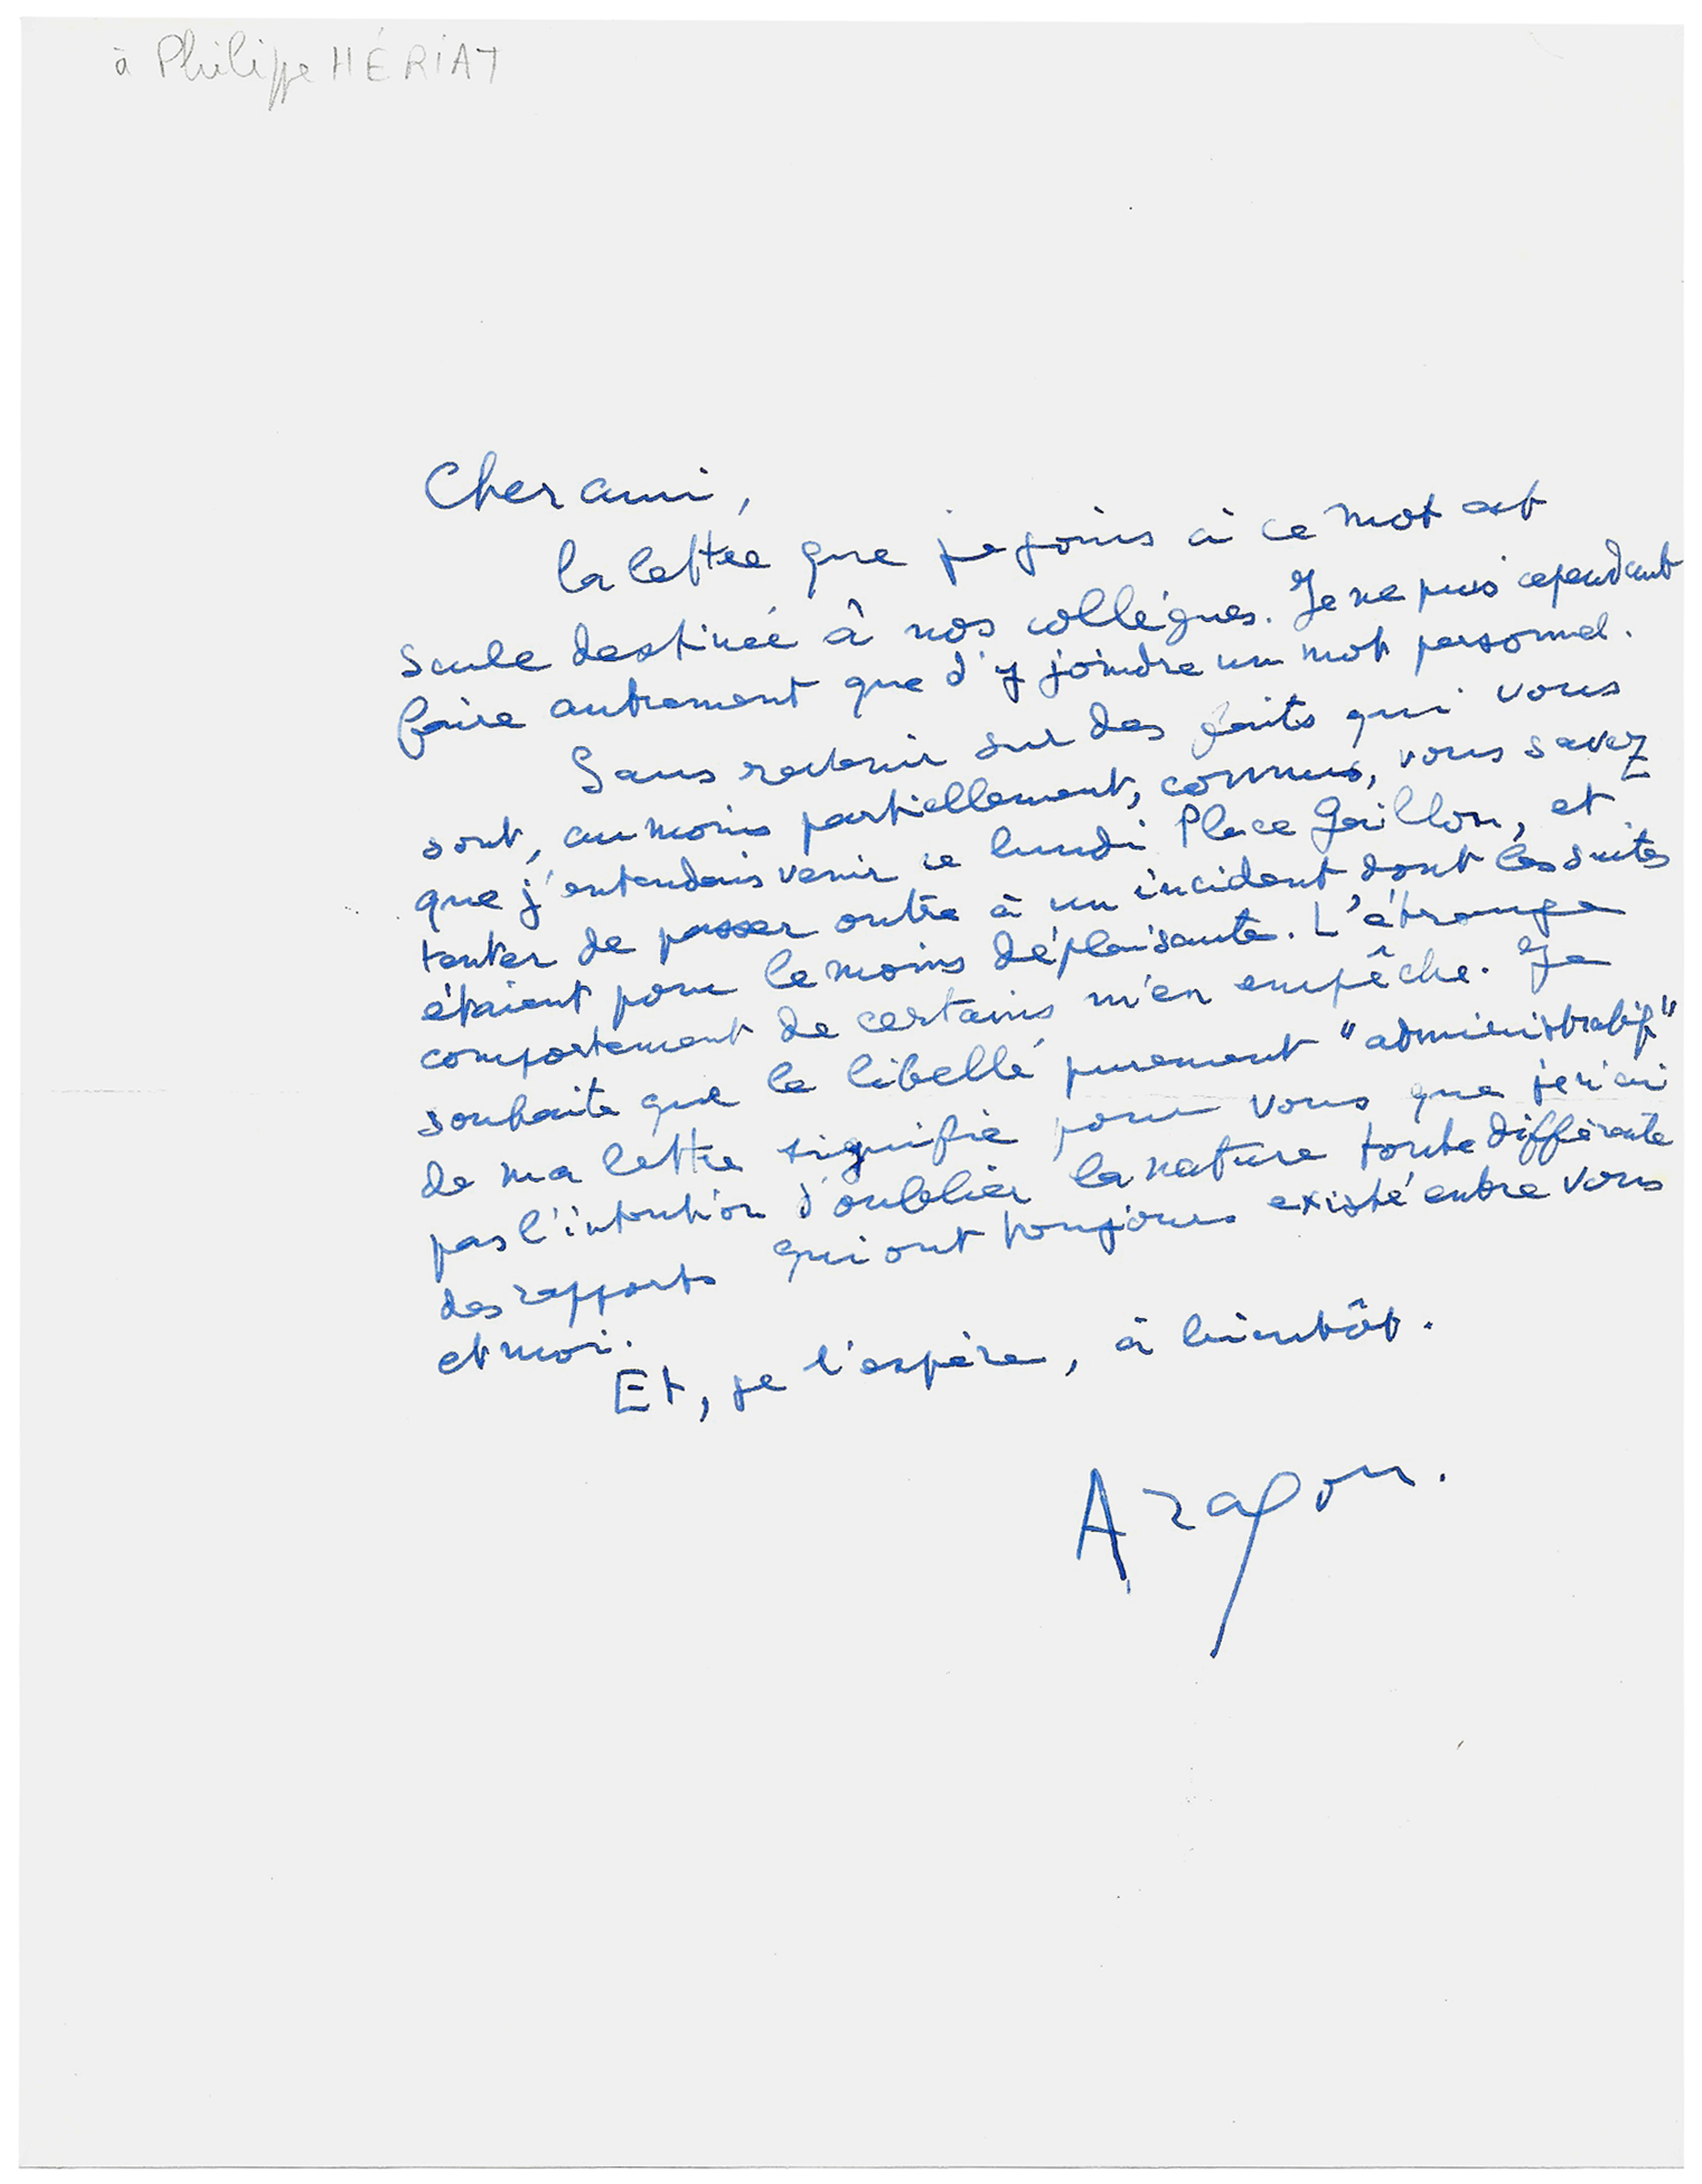 à Philippe HÉRIAT
Cher ami,
la lettre que je joins à ce mot est
seule destinée à nos collègues. Je ne puis cependant
faire autrement que d'y joindre un mot personnel.
Sans revenir sur des faits qui vous
sont, au moins partiellement, connus, vous savez
que j'entendais venir ce lundi Place Gaillon, et
tenter de passer outre à un incident dont les suites
étaient pour le moins déplaisante. L'étrange
comportement de certains m'en empêche. Je
souhaite que le libellé purement "administratif"
de ma lettre signifie pour vous que je n'ai
pas l'intention d'oublier la nature toute différente
des rapports qui ont toujours existé entre vous
et moi.
Et, je l'espère, à bientôt.
Aragon.